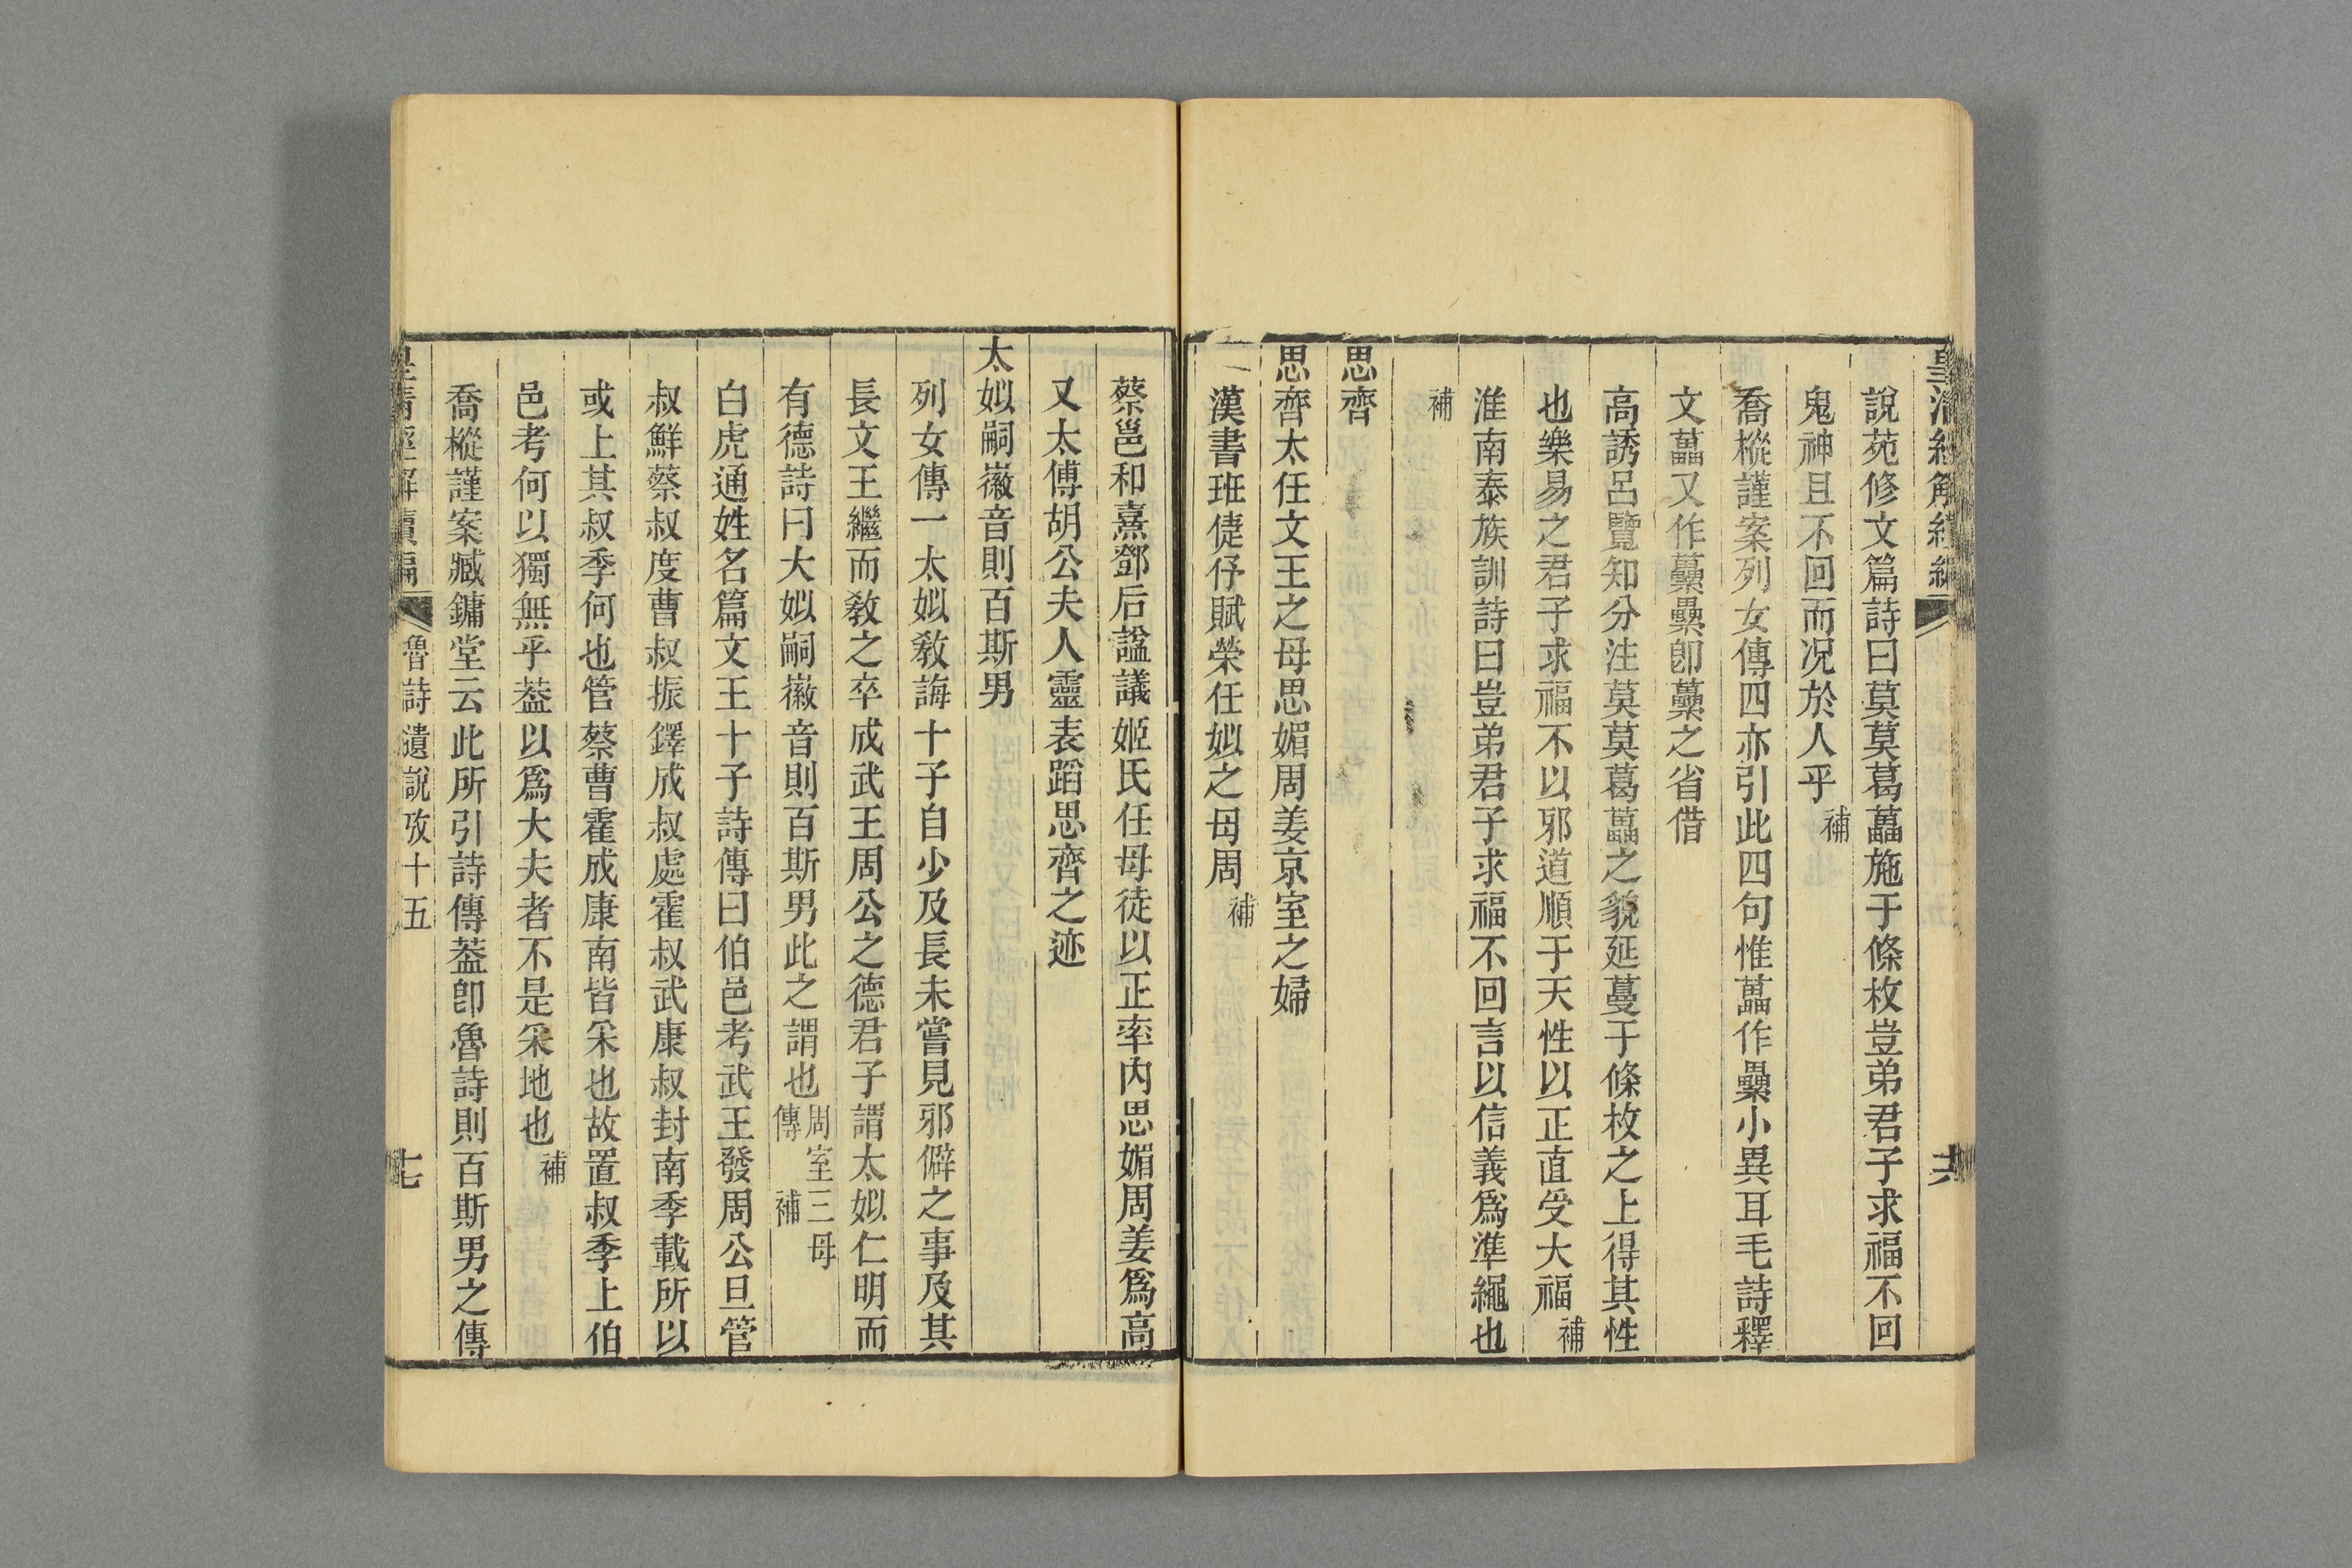 說苑修文篇詩曰莫莫葛藟施于條枚豈弟君子求福不回
鬼神且不回而况於人乎補
喬樅謹案列女傳四亦引此四句惟藟作櫐小異耳毛詩釋
文藟又作虆櫐卽虆之省借
高誘呂覽知分注莫莫葛藟之貌延蔓于條枚之上得其性
也樂易之君子求福不以邪道順于天性以正直受大福補
淮南泰族訓詩曰豈弟君子求福不回言以信義爲準繩也
補
思齊
思齊太任文王之母思媚周姜京室之婦
漢書班倢伃賦榮任姒之母周補
蔡邕和熹鄧后諡議姬氏任母徒以正率內思媚周姜爲高
又太傅胡公夫人靈表蹈思齊之迹
太姒嗣徽音則百斯男
列女傳一太姒敎誨十子自少及長未嘗見邪僻之事及其
長文王繼而敎之卒成武王周公之德君子謂太姒仁明而
有德詩曰大姒嗣徽音則百斯男此之謂也周室三母傳補
白虎通姓名篇文王十子詩傳曰伯邑考武王發周公旦管
叔鮮蔡叔度曹叔振鐸成叔處霍叔武康叔封南季載所以
或上其叔季何也管蔡曹霍成康南皆采也故置叔季上伯
邑考何以獨無乎葢以爲大夫者不是采地也補
喬樅謹案臧鏞堂云此所引詩傳葢卽魯詩則百斯男之傳
皇清經解續編 魯詩遺說攷十五 七